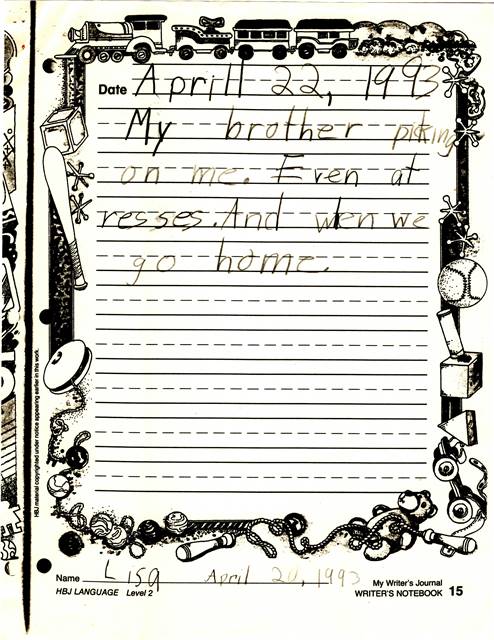 Date Aprill 22, 1993
My brother picking
on me. Even at
resses. And wen we
go home.
HBJ material copyrighted under notice appearing earlier in this work.
Name Lisa April 20, 1993
My Writer's Journal
HBJ LANGUAGE Level 2 WRITER'S NOTEBOOK 15